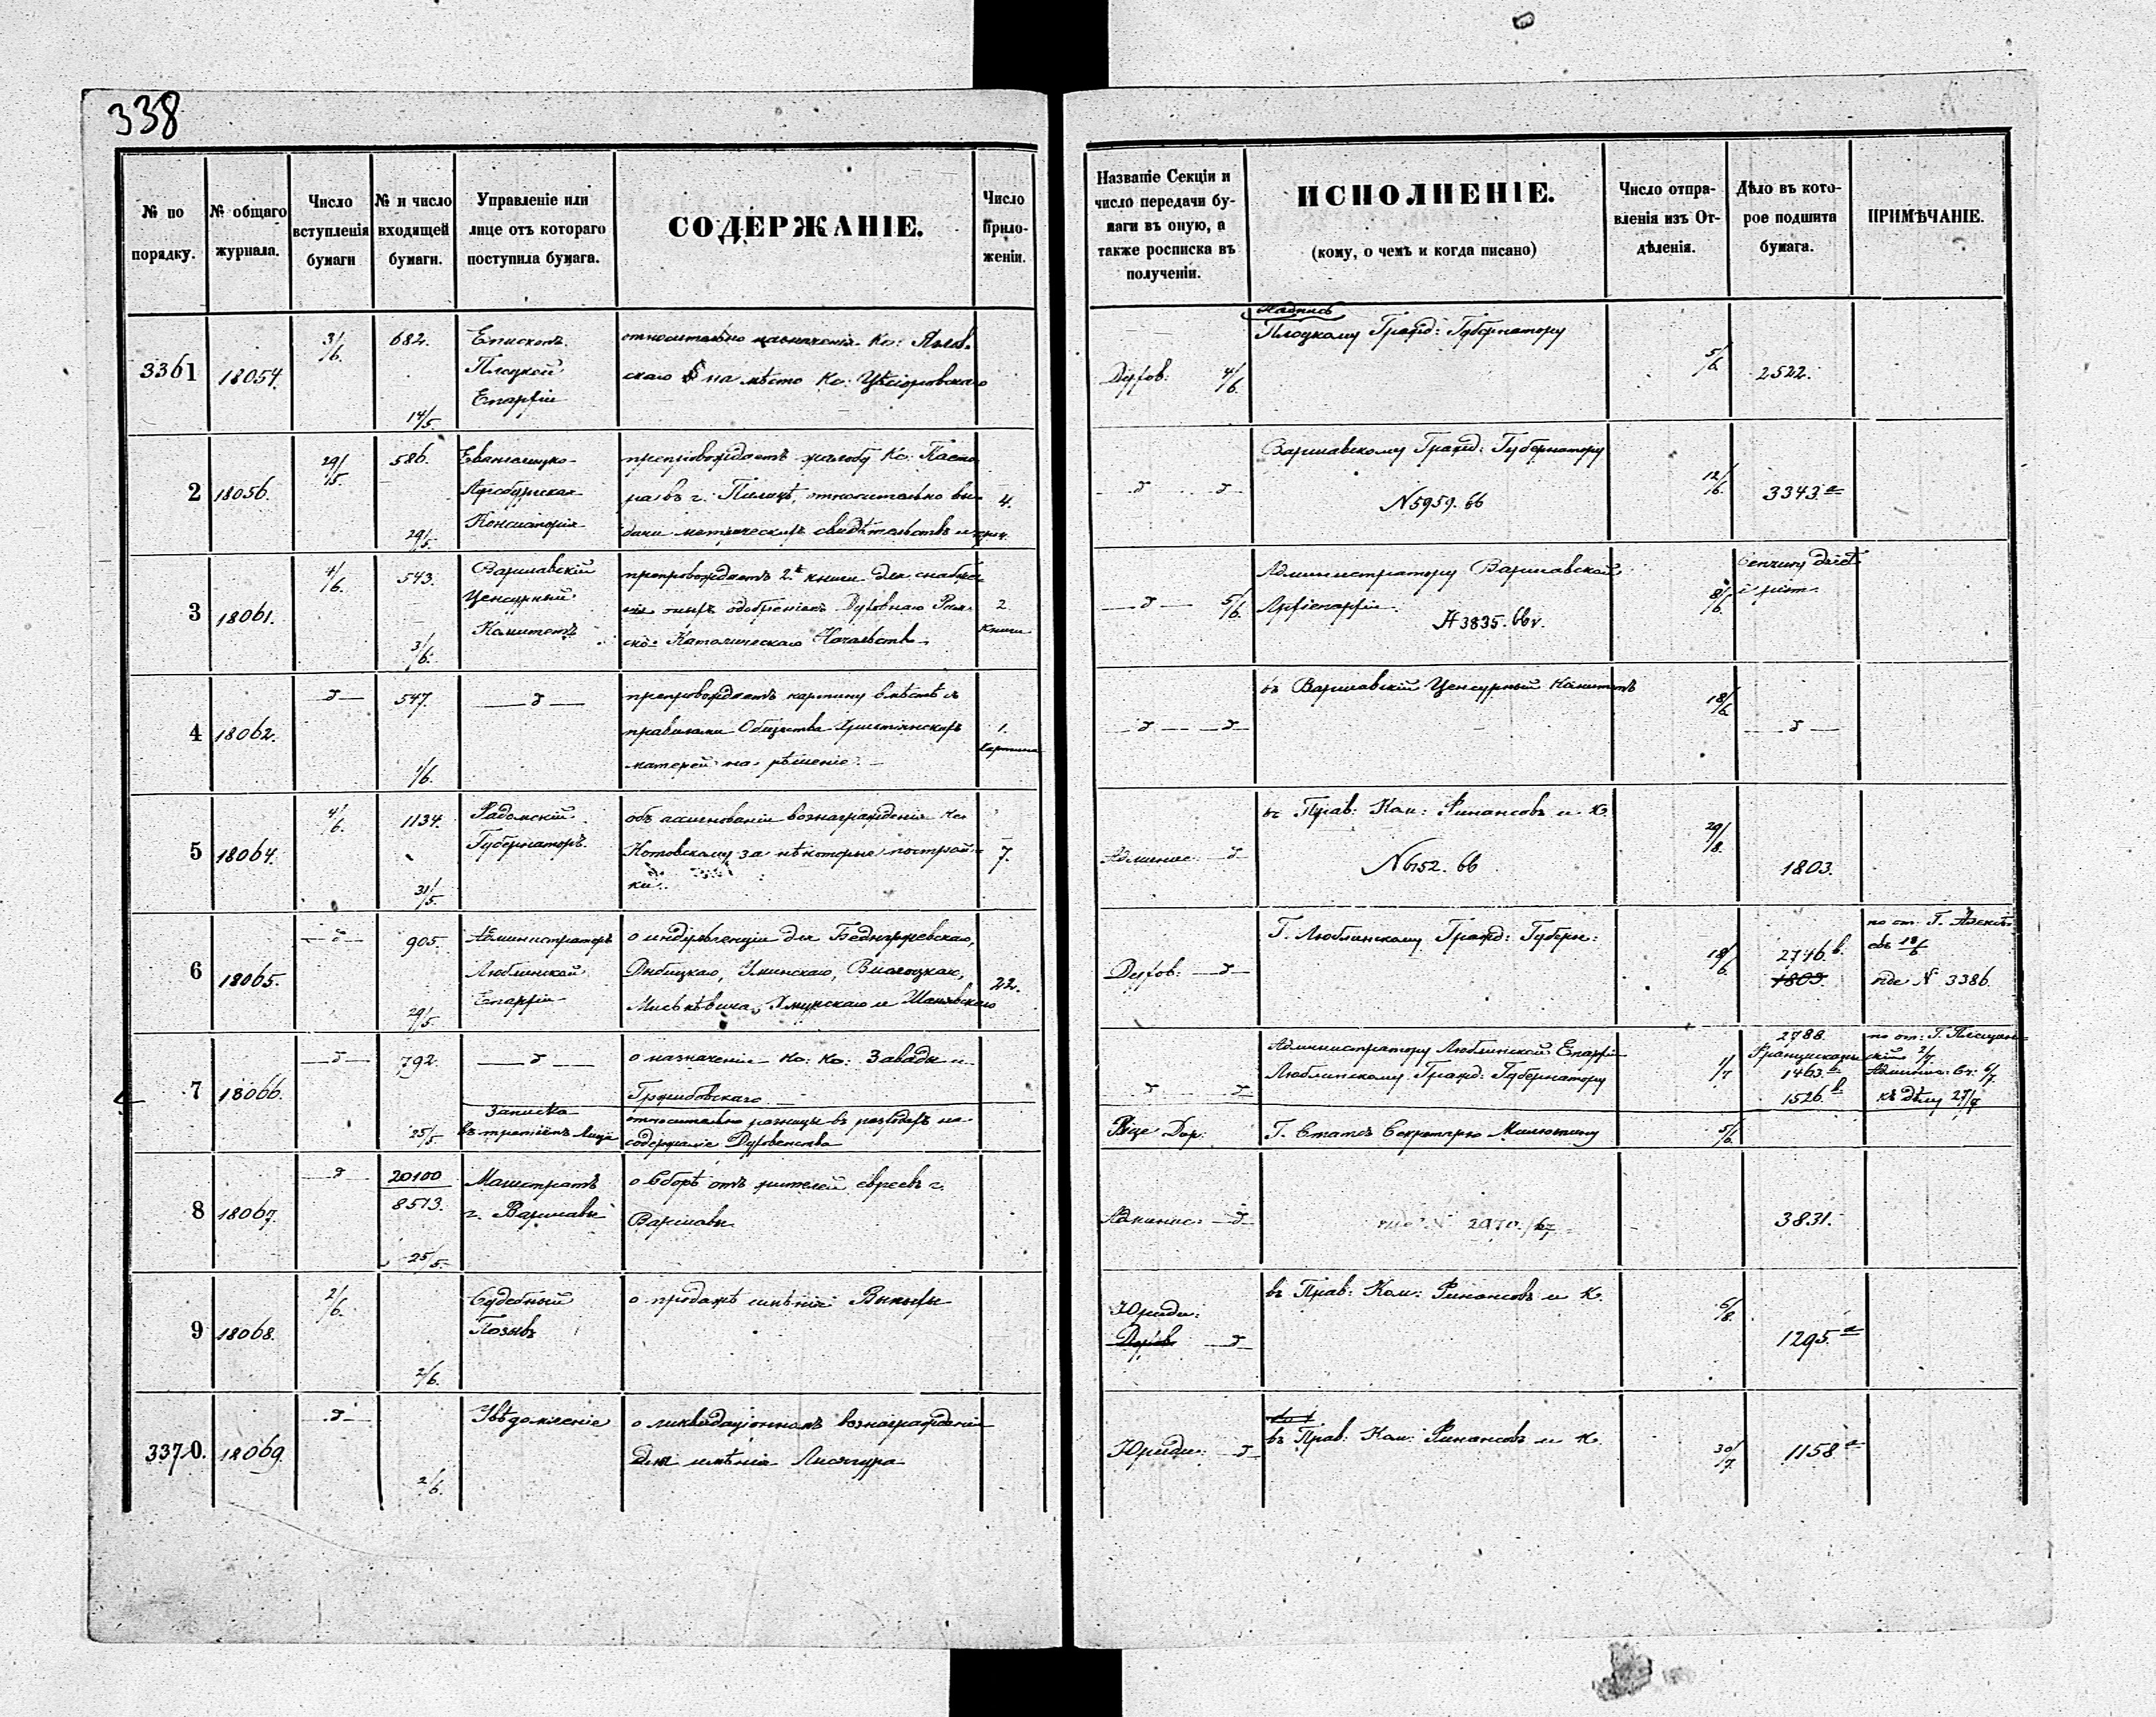 338
№ по порядку.
№ общаго журнала.
Число вступленія бумаги
№ и число входящей бумаги.
Управленіе или лице отъ котораго поступила бумага.
СОДЕРЖАНІЕ.
Число приложеніи.
Названіе Секціи и число передачи бумаги въ оную, а также росписка въ полученіи.
ИСПОЛНЕНІЕ.
(кому, о чемъ и когда писано)
Число отправленія изъ Отдѣленія.
Дѣло въ которое подшита бумага.
ПРИМѢЧАНІЕ.
3361
18054.
3/6.
682.
14/5.
Епископъ
Плоцкой
Епархіи
относительно назначенія Кс:
скаго на мѣсто Кс:
Духов: 4/6.
Надпись
Плоцкому Гражд: Губернатору
5/6.
2522.
2
18056.
29/5.
586.
29/5.
Евангелицко-
Аугсбургская
Консисторія
препровождаетъ жалобу Кс. Пасто
ра въ г. Пилицѣ, относительно вы
дачи метрическихъ свидѣтельствъ и проч.
4.
д д
Варшавскому Гражд: Губернатору
N 5959. 66
12/6.
3343. а
3
18061.
4/6.
543.
3/6.
Варшавскій
Цензурный
Комитетъ
препровождаетъ 2 книги для снабже
нія оныхъ одобреніемъ Духовнаго Рим
ско-Католическаго Начальства
2
книги
д 5/6.
Администратору Варшавской
Архіепархіи
N 3835. 66 г.
8/6
Cenzury dzieł
i pism.
4
18062.
д
547.
1/6.
д
препровождаетъ картину вмѣстѣ съ
правилами Общества Христіянскихъ
матерей на рѣшеніе.
1.
картина
д д
въ Варшавскій Цензурный Комитетъ
18/6.
д
5
18064.
4/6.
1134.
31/5.
Радомскій
Губернаторъ.
объ ассигнованіи вознагражденія Кс.
Котовскому за нѣкоторые построй
ки.
7.
Админис. д
въ Прав: Ком: Финансовъ и К.
N 6152. 66
29/8.
1803.
6
18065.
д
905.
29/5.
Администраторъ
Люблинской
Епархіи
о индульгенціи для Беднаржевскаго,
22.
Духов: д
Г. Люблинскому Гражд: Губерн:
18/6
2746. в.
1803.
по от. Г.
18/6
vide N 3386.
7
18066.
д
792.
25/5
д
о назначеніи Кс: Кс: Завады и
Гржибовскаго
Записка
въ третьемъ лицѣ
относительно разницы въ расходахъ на
содержаніе Духовенства
д д
Администратору Люблинской Епархіи
Люблинскому Гражд: Губернатору
1/7
2788.
1463. а
1526. в
къ дѣлу 27/7
Вице Дир:
Г. Статсъ Секретарю Милютину
5/6.
8
18067.
д
20100
8513.
25/5.
Магистратъ
г. Варшавы
о сборѣ отъ жителей евреевъ г.
Варшавы
Админис. д
vide N 2970./67.
3831.
9
18068.
2/6.
2/6.
Судебный
Позывъ
о продажѣ имѣнія
Юриди:
Духов. д
въ Прав: Ком: Финансовъ и К.
6/8.
1295. а
3370.
18069.
д
2/6.
Увѣдомленіе
о ликвидаціонномъ вознагражденіи
для имѣнія Лисягура
Юриди: д
въ Прав: Ком: Финансовъ и К.
30/7.
1158. а